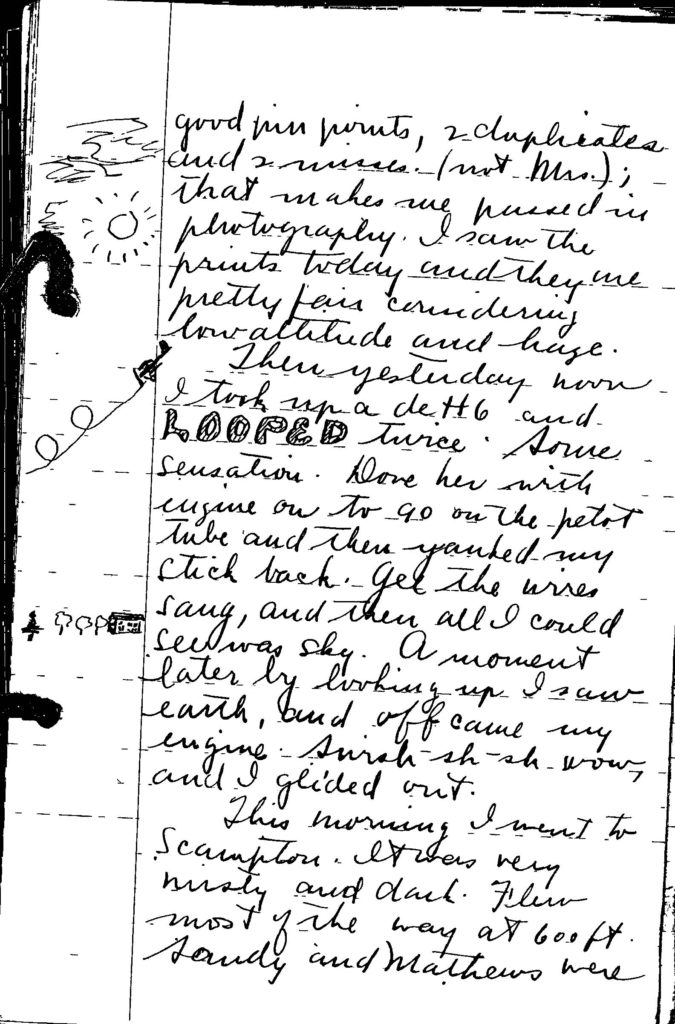 good pin points, 2 duplicates
and 2 misses. (not Mrs.);
that makes me passed in
photography. I saw the
prints today and they are
pretty fair considering
low altitude and haze.
Then yesterday noon
I took up a de H 6 and
LOOPED twice. Some
sensation. Dove her with
engine on to 90 on the petot
tube and then yanked my
stick back. Gee the wires
sang, and then all I could
see was sky. A moment
later by looking up I saw
earth, and off came my
engine. Swish-sh-sh wow,
and I glided out.
This morning I went to
Scampton. It was very
misty and dark. Flew
most of the way at 600 ft.
Sandy and Mathews were